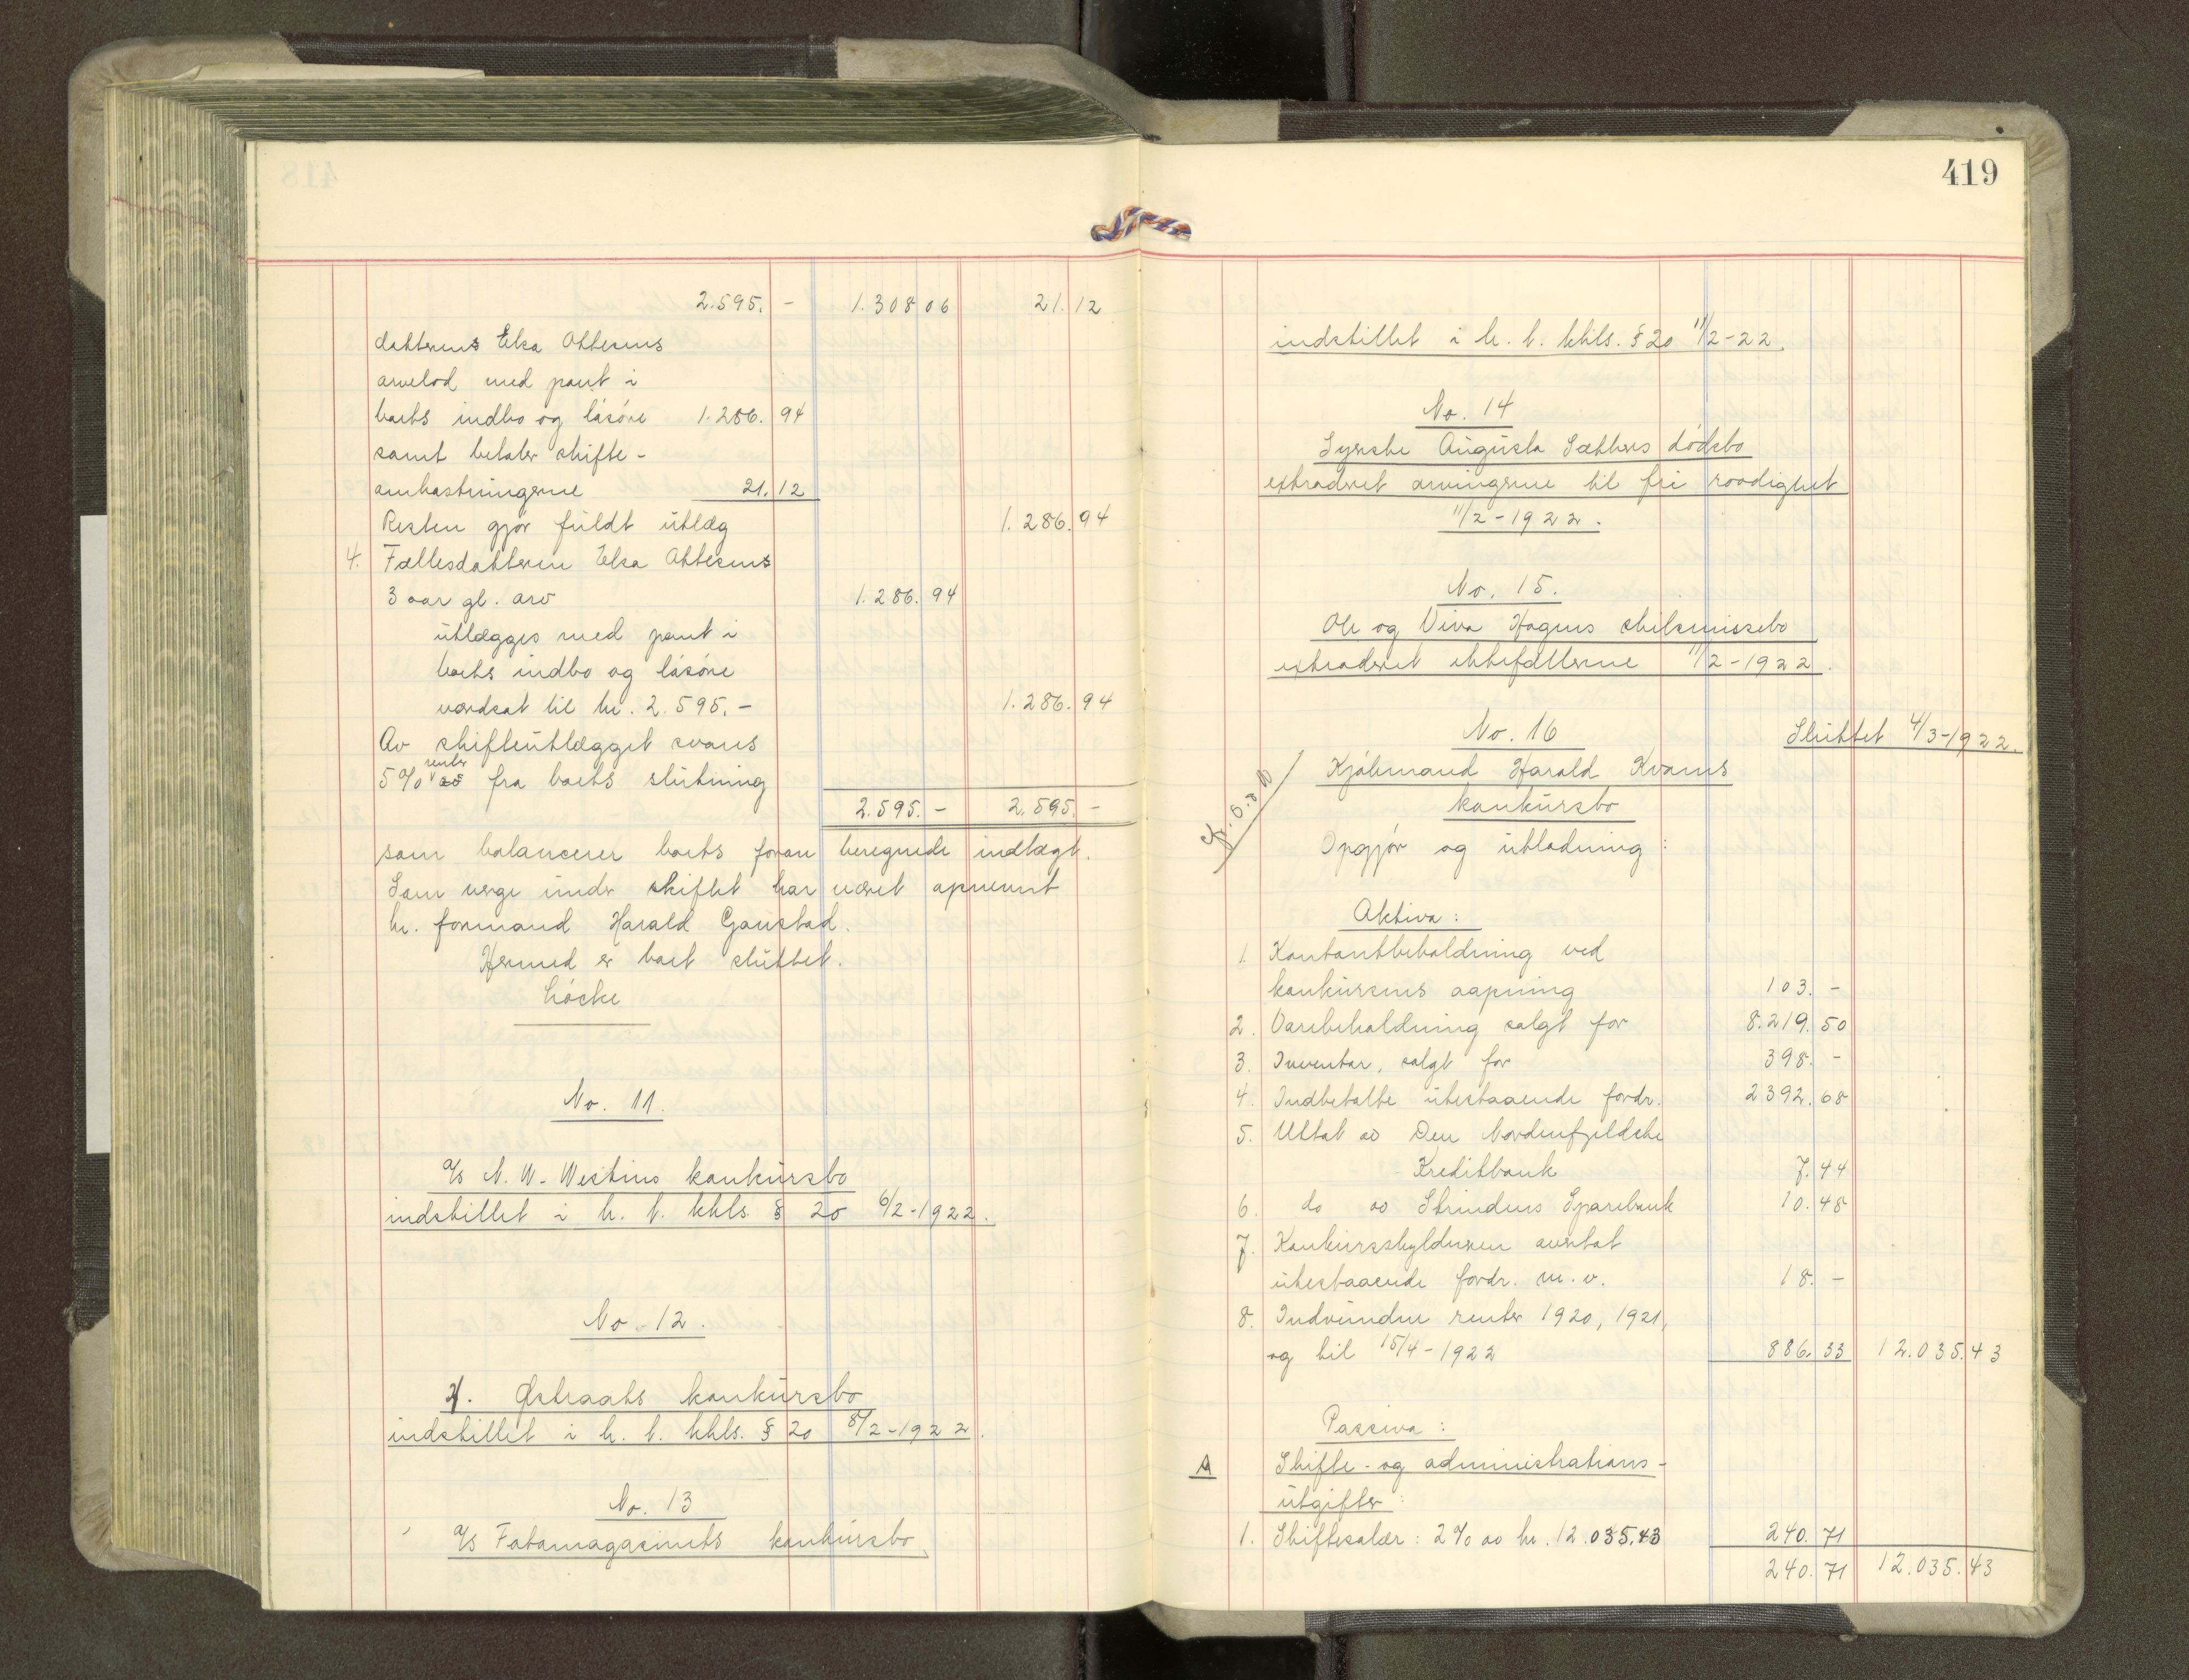 2.595. - 1.308 06 21.12
datterens Elsa Ottesens
arvelod med pant i
boets indbo og løsøre 1.286. 94
samt betaler skifte-
omkostningerne 21. 12
Resten gjør fuldt utlæg 1.286. 94
4. Fællesdatteren Elsa Ottesens
3 aar gl. arv 1.286. 94
utlægges med pant i
boets indbo og løsøre
værdsat til kr. 2.595. - 1.286. 94
Av skifteutlægget svares
5% renter fra boets slutning
2.595. - 2.595. -
som balancerer boets foran beregnede indtægt.
Som verge under skiftet har været opnevnt
hr. formand Harald Ganstad.
Hermed er boet sluttet.
No. 11.
A/s N. W. Westins konkursbo
indstillet i h. t. kkls. § 20 6/2-1922.
No. 12.
Østraats konkursbo
indstillet i h. t. kkls. § 20 8/2-1922.
No. 13
A/s Fotomagasinets konkursbo
419
indstillet i h. t. kkls. § 20 11/2-22
No. 14
Syerske Augusta Sæthers dødsbo
extraderet arvingerne til fri raadighet
11/2-1922.
No. 15.
Ole og Viva Hagens skilsmissebo
extraderet ektefællerne 11/2-1922.
No. 16 Sluttet 4/3-1922.
Kjøbmand Harald Kvams
konkursbo
Opgjør og utlodning:
Aktiva:
1. Kontantbeholdning ved
konkursens aapning 103. -
2. Varebeholdning solgt for 8.219. 50
3. Inventar, solgt for 398. -
4. Indbetalte utestaaende fordr. 2392. 68
5. Uttat av Den Nordenfjeldske
Kreditbank 7. 44
6. do av Strindens Sparebank 10. 48
7. Konkursskyldneren overtat
utestaaende fordr. m. v. 18. -
8. Indvundne renter 1920, 1921,
og til 15/4-1922 886. 33 12.035. 43
Passiva:
A Skifte- og administrations-
utgifter:
1. Skiftesalær: 2% av kr. 12.035.43 240. 71
240. 71 12.035. 43